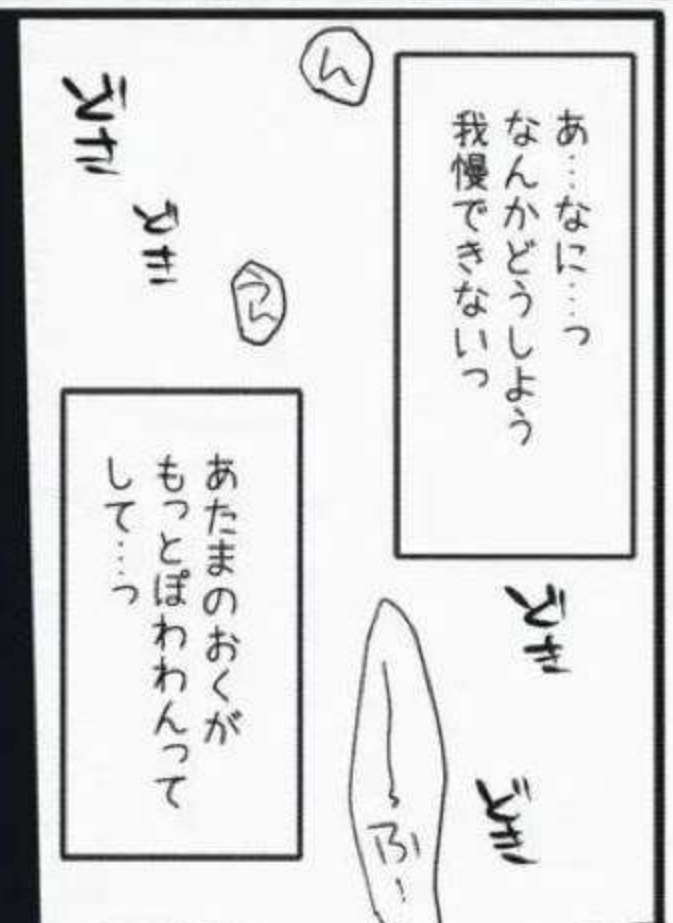 あ…なに…っ
なんかどうしよう
我慢できないっ
ん
どき
どき
うん
どき
どき
あたまのおくが
もっとぽわわんって
して…っ